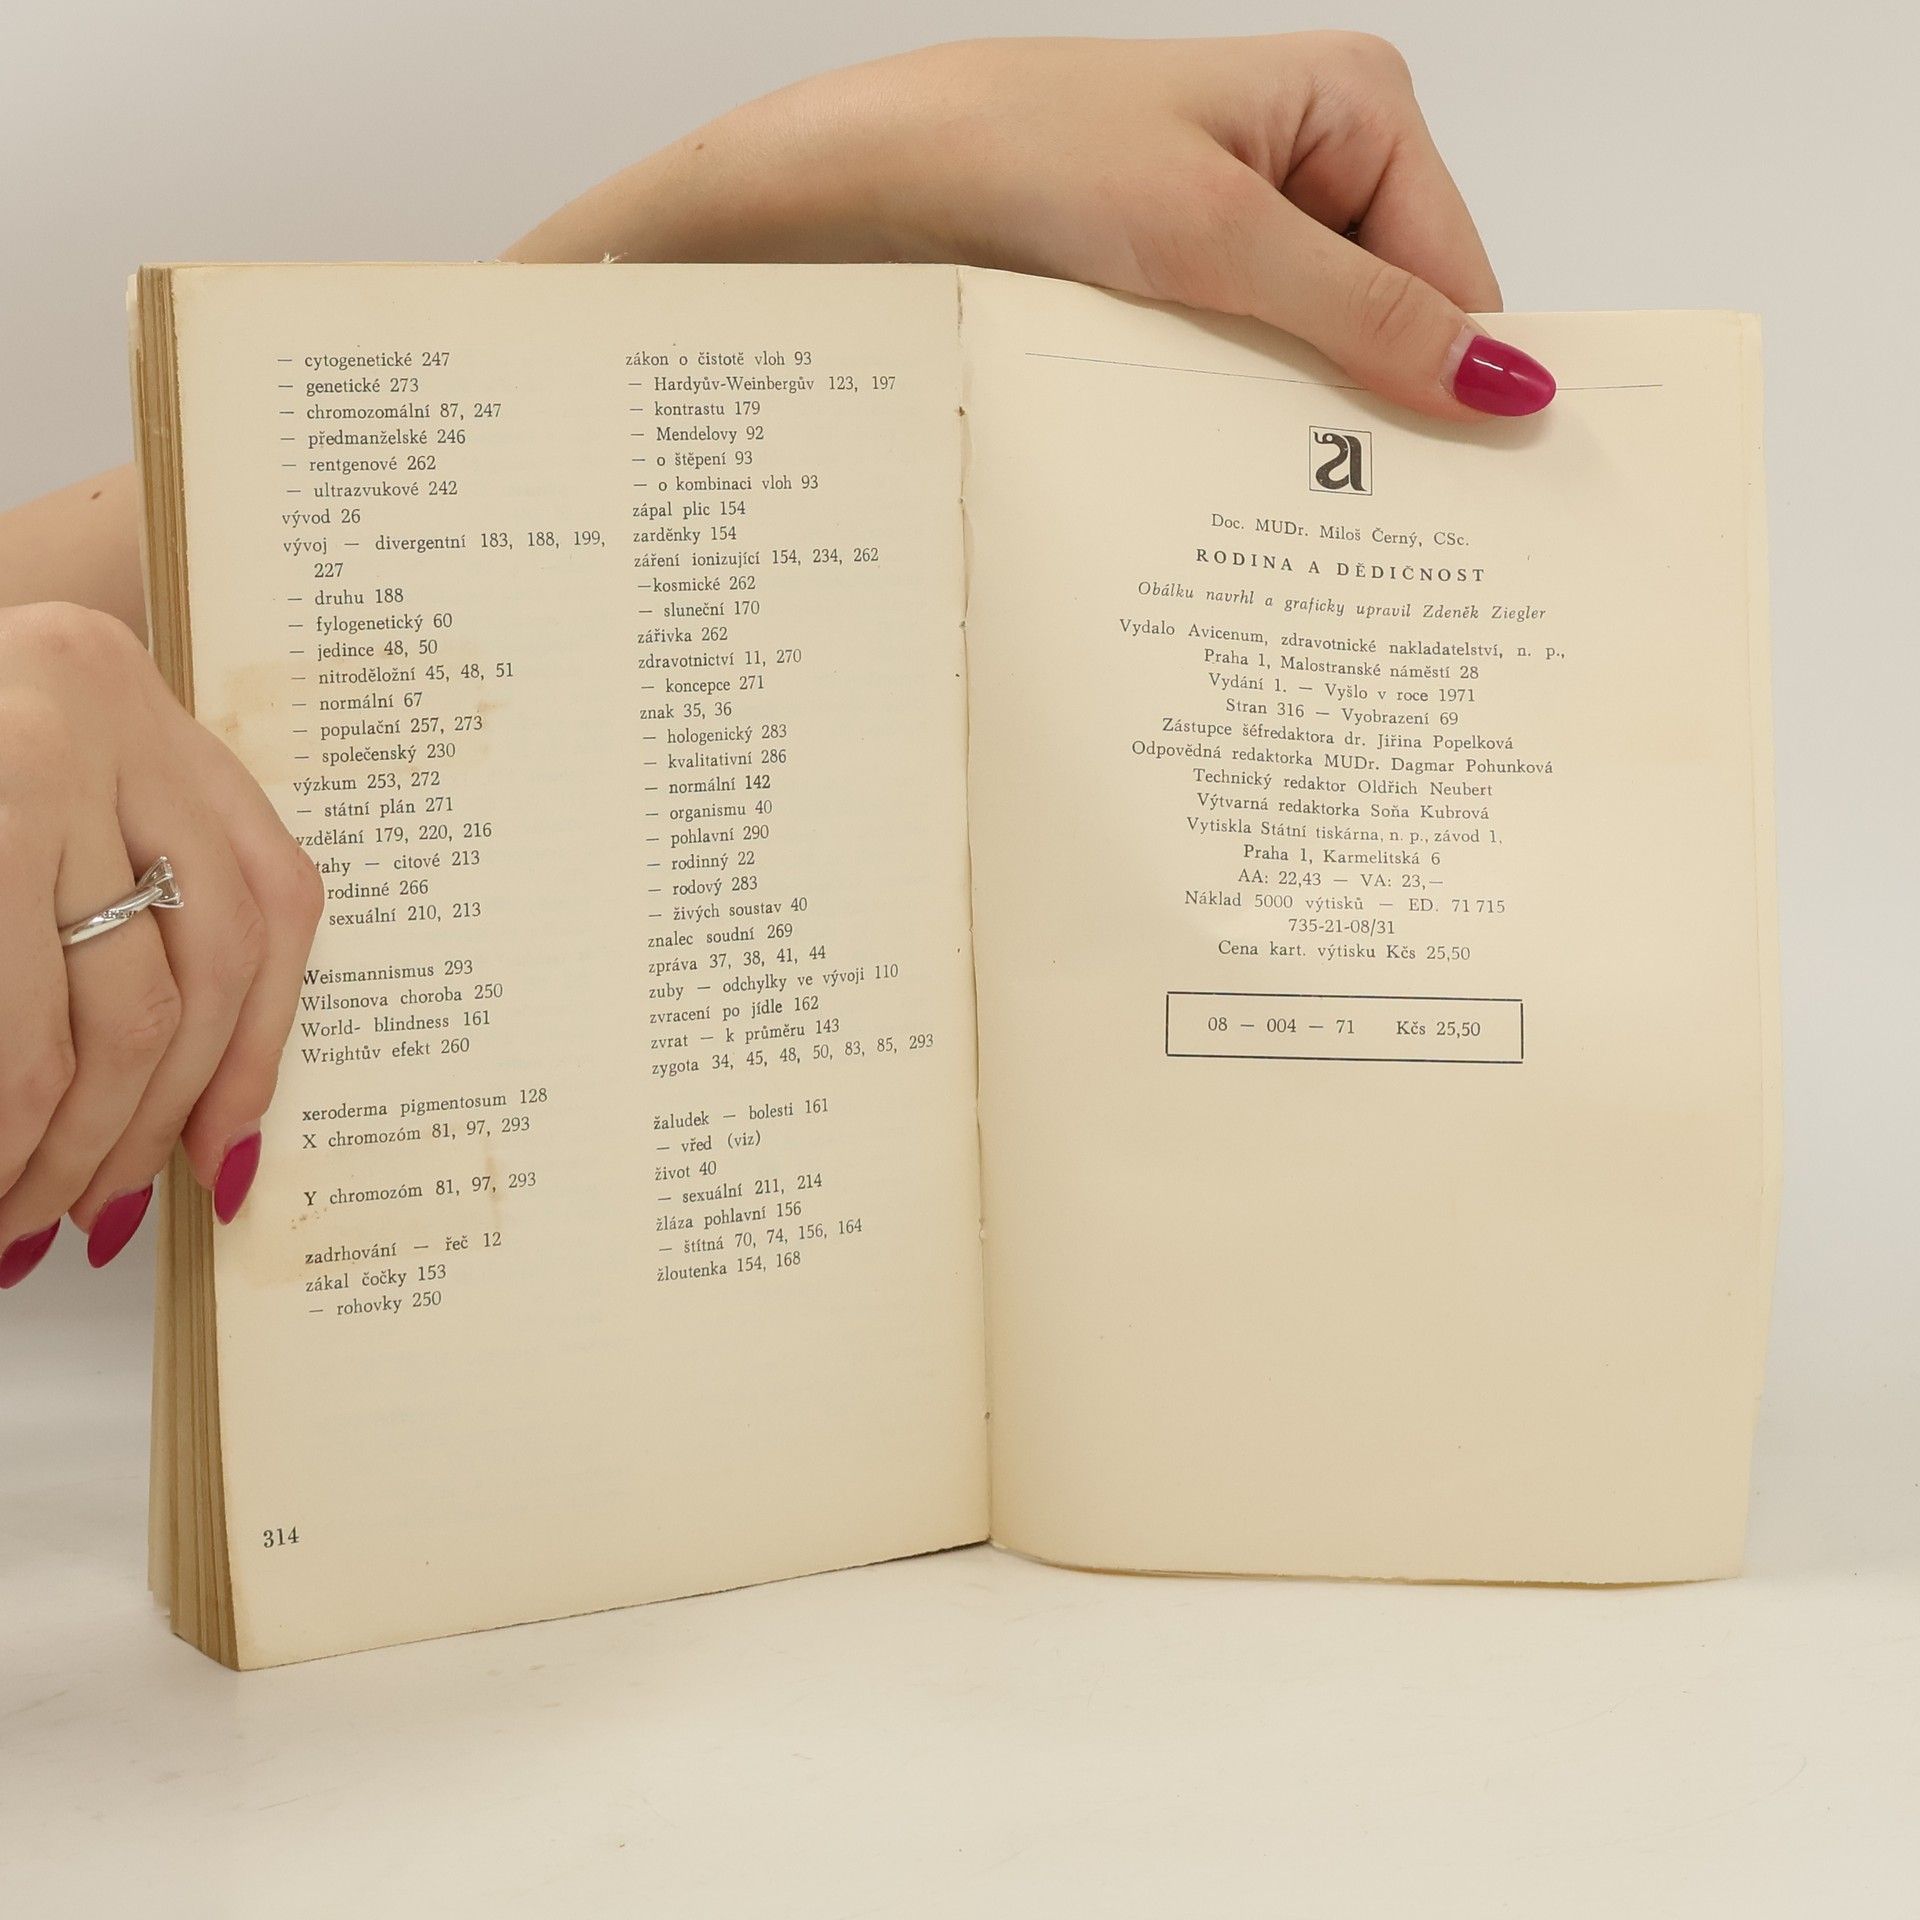 — cytogenetické 247
— genetické 273
— chromozomální 87, 247
— předmanželské 246
— rentgenové 262
— ultrazvukové 242
vývod 26
vývoj — divergentní 183, 188, 199,
227
— druhu 188
— fylogenetický 60
— jedince 48, 50
— nitroděložní 45, 48, 51
— normální 67
— populační 257, 273
— společenský 230
výzkum 253, 272
— státní plán 271
vzdělání 179, 220, 216
tahy — citové 213
rodinné 266
sexuální 210, 213
Weismannismus 293
Wilsonova choroba 250
World- blindness 161
Wrightův efekt 260
xeroderma pigmentosum 128
X chromozóm 81, 97, 293
Y chromozóm 81, 97, 293
zadrhování — řeč 12
zákal čočky 153
— rohovky 250
314
zákon o čistotě vloh 93
— Hardyův-Weinbergův 123, 197
— kontrastu 179
— Mendelovy 92
— o štěpení 93
— o kombinaci vloh 93
zápal plic 154
zarděnky 154
záření ionizující 154, 234, 262
—kosmické 262
— sluneční 170
zářivka 262
zdravotnictví 11, 270
— koncepce 271
znak 35, 36
— hologenický 283
— kvalitativní 286
— normální 142
— organismu 40
— pohlavní 290
— rodinný 22
— rodový 283
— živých soustav 40
znalec soudní 269
zpráva 37, 38, 41, 44
zuby — odchylky ve vývoji 110
zvracení po jídle 162
zvrat — k průměru 143
zygota 34, 45, 48, 50, 83, 85, 293
žaludek — bolesti 161
— vřed (viz)
život 40
— sexuální 211, 214
žláza pohlavní 156
— štítná 70, 74, 156, 164
žloutenka 154, 168
Doc. MUDr. Miloš Černý, CSc.
RODINA A DĚDIČNOST
Obálku navrhl a graficky upravil Zdeněk Ziegler
Vydalo Avicenum, zdravotnické nakladatelství, n. p.,
Praha 1, Malostranské náměstí 28
Vydání 1. — Vyšlo v roce 1971
Stran 316 — Vyobrazení 69
Zástupce šéfredaktora dr. Jiřina Popelková
Odpovědná redaktorka MUDr. Dagmar Pohunková
Technický redaktor Oldřich Neubert
Výtvarná redaktorka Soňa Kubrová
Vytiskla Státní tiskárna, n. p., závod 1,
Praha 1, Karmelitská 6
AA: 22,43 — VA: 23,—
Náklad 5000 výtisků — ED. 71 715
735-21-08/31
Cena kart. výtisku Kčs 25,50
08 — 004 — 71 Kčs 25,50